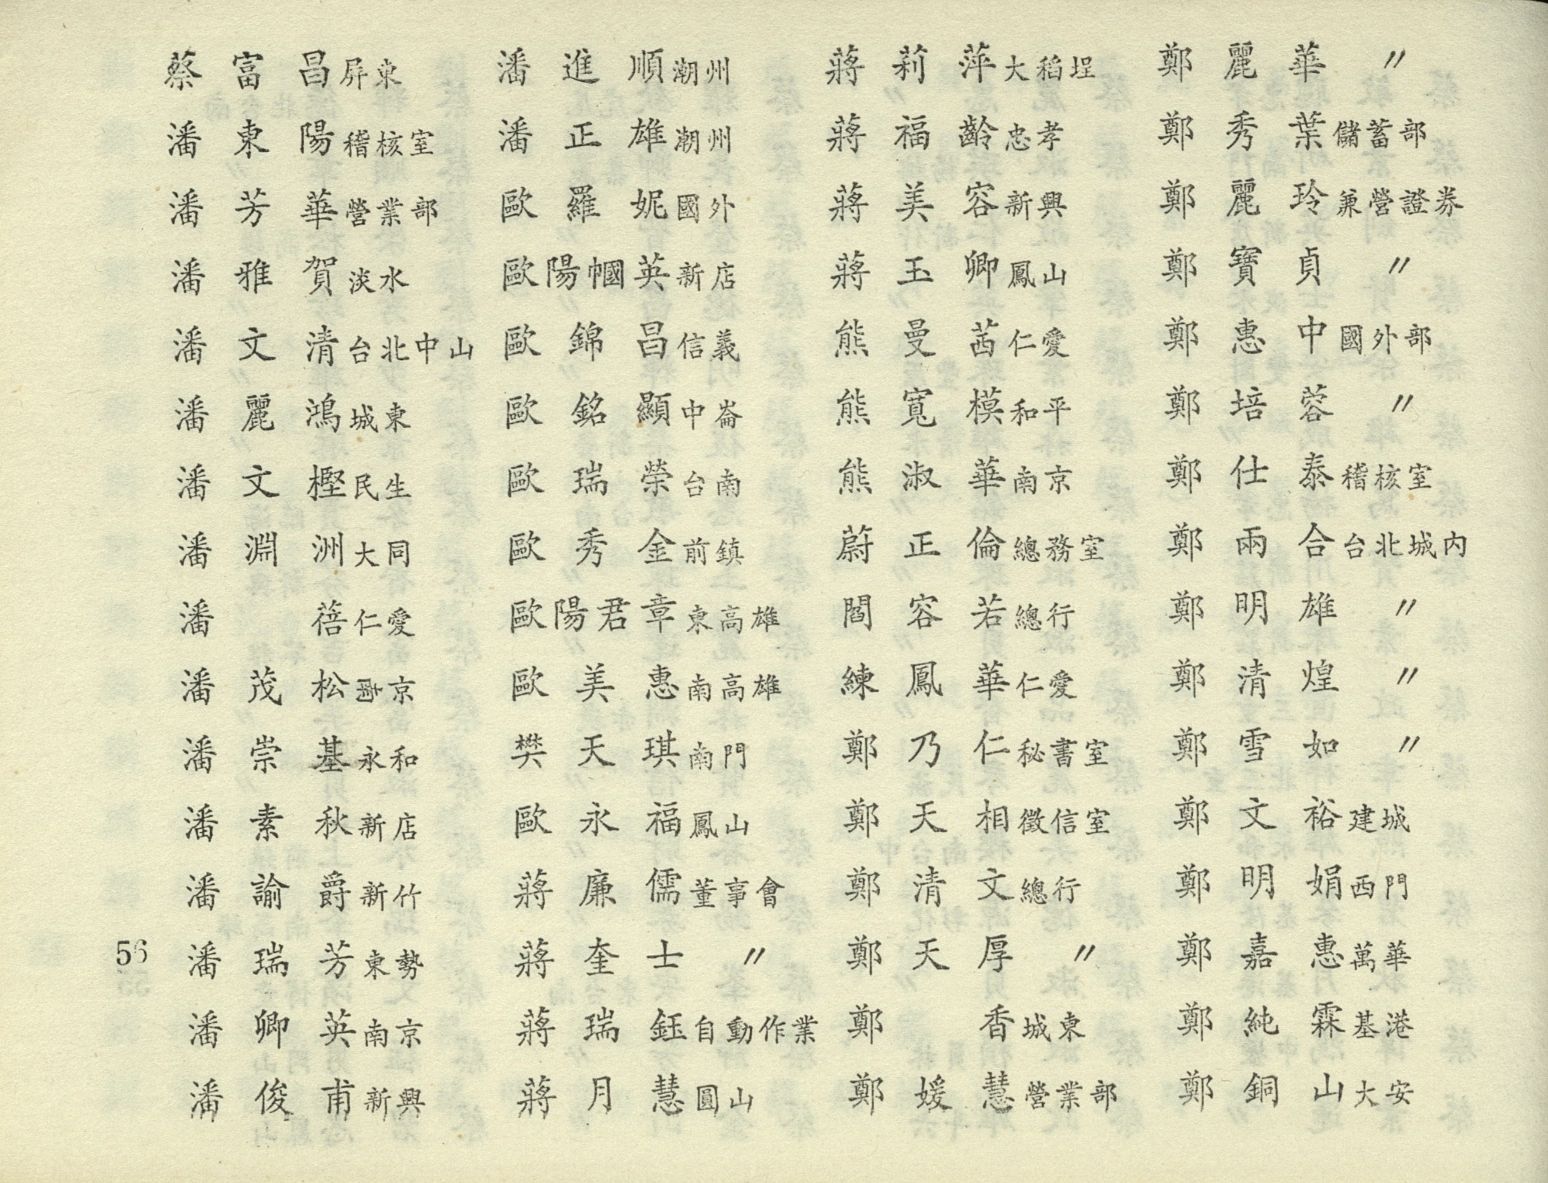 蔡富昌屏東
潘東陽稽核室
潘芳華營業部
潘雅賀淡水
潘文清台北中山
潘麗鴻城東
潘文樫民生
潘淵洲大同
潘蓓仁愛
潘茂松南京
潘崇基永和
潘素秋新店
潘諭爵新竹
潘瑞芳東勢
潘卿英南京
潘俊甫新興
潘進順潮州
潘正雄潮州
歐羅妮國外
歐陽幗英新店
歐錦昌信義
歐銘顯中崙
歐瑞榮台南
歐秀金前鎮
歐陽君章東高雄
歐美惠南高雄
樊天琪南門
歐永福鳳山
蔣廉儒董事會
蔣奎士〃
蔣瑞鈺自動作業
蔣月慧圓山
蔣莉萍大稻埕
蔣福齡忠孝
蔣美容新興
蔣玉卿鳳山
熊曼茜仁愛
熊寬模和平
熊淑華南京
蔚正倫總務室
閻容若總行
練鳳華仁愛
鄭乃仁秘書室
鄭天相徵信室
鄭清文總行
鄭天厚〃
鄭香城東
鄭媛慧營業部
鄭麗華〃
鄭秀葉儲蓄部
鄭麗玲兼營證券
鄭寶貞〃
鄭惠中國外部
鄭培蓉〃
鄭仕泰稽核室
鄭兩合台北城內
鄭明雄〃
鄭清煌〃
鄭雪如〃
鄭文裕建城
鄭明娟西門
鄭嘉惠萬華
鄭純霖基港
鄭銅山大安
56